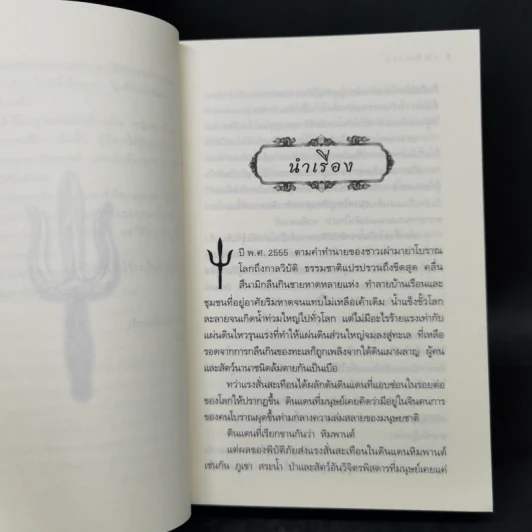 นำเรื่อง
ปี พ.ศ. 2555 ตามคำทำนายของชาวเผ่ามายาโบราณ
โลกมีถึงกาลวิบัติ ธรรมชาติแปรปรวนถึงขีดสุด คลื่น
สึนามิกลืนกินชายหาดหลายแห่ง ทำลายบ้านเรือนและ
ชุมชนที่อยู่อาศัยริมหาดจนแทบไม่เหลือเค้าเดิม น้ำแข็งขั้วโลก
ละลายจนเกิดน้ำท่วมใหญ่ไปทั่วโลก แต่ไม่มีอะไรร้ายแรงเท่ากับ
แผ่นดินไหวรุนแรงที่ทำให้แผ่นดินส่วนใหญ่จมลงสู่ทะเล ที่เหลือ
รอดจากการกลืนกินของทะเลก็ถูกเพลิงจากใต้ดินเผาผลาญ ผู้คน
และสัตว์นานาชนิดล้มตายกันเป็นเบือ
ทว่าแรงสั่นสะเทือนได้ผลักดันดินแดนที่แอบซ่อนในรอยต่อ
ของโลกให้ปรากฏขึ้น ดินแดนที่มนุษย์เคยคิดว่ามีอยู่ในจินตนาการ
ของคนโบราณผุดขึ้นท่ามกลางความล่มสลายของมนุษยชาติ
ดินแดนที่เรียกขานกันว่า หิมพานต์
แต่ผลของพิบัติภัยส่งแรงสั่นสะเทือนในดินแดนหิมพานต์
เช่นกัน ภูเขา สระน้ำ ป่าและสัตว์อันวิจิตรพิสดารที่มนุษย์เคยแค่